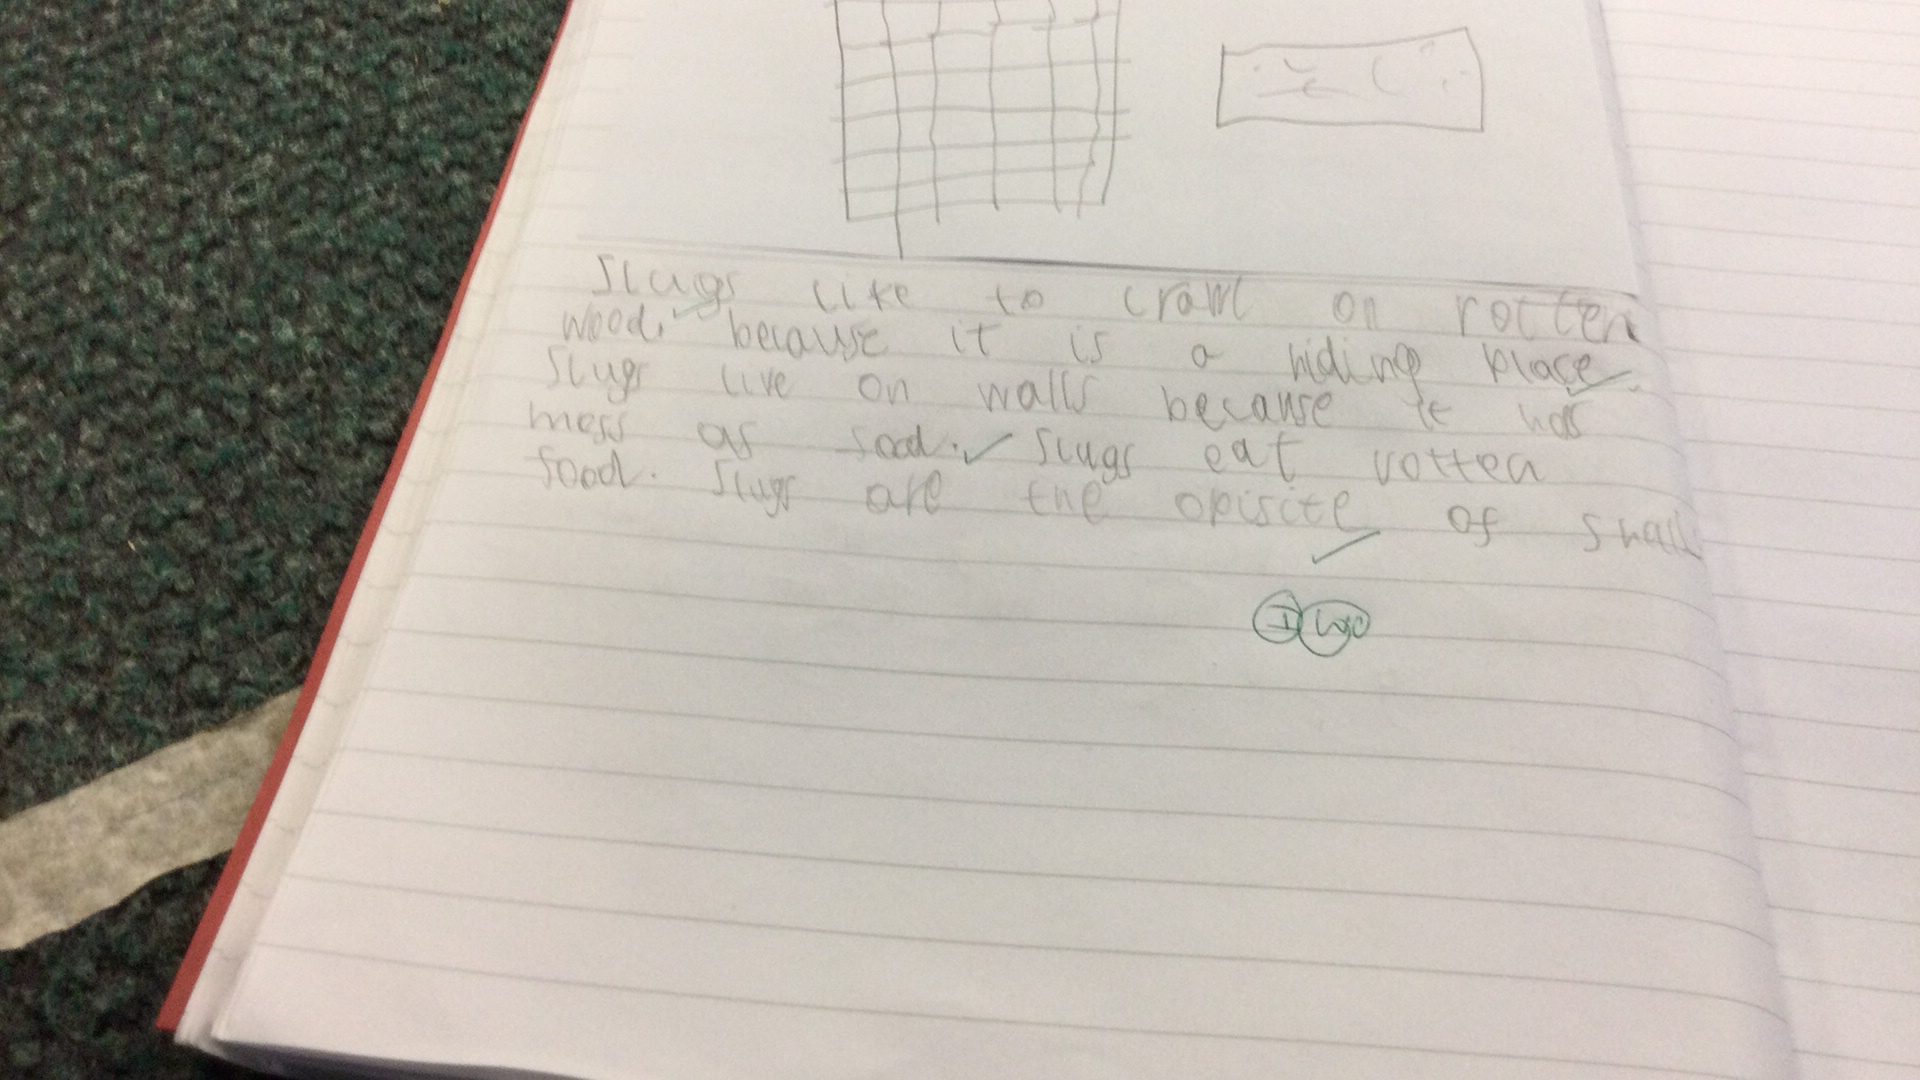 Slugs like to crawl on rotten
wood. because it is a hiding place.
Slugs live on walls because it has
mess as food. Slugs eat rotten
food. Slugs are the opisite of snails
I